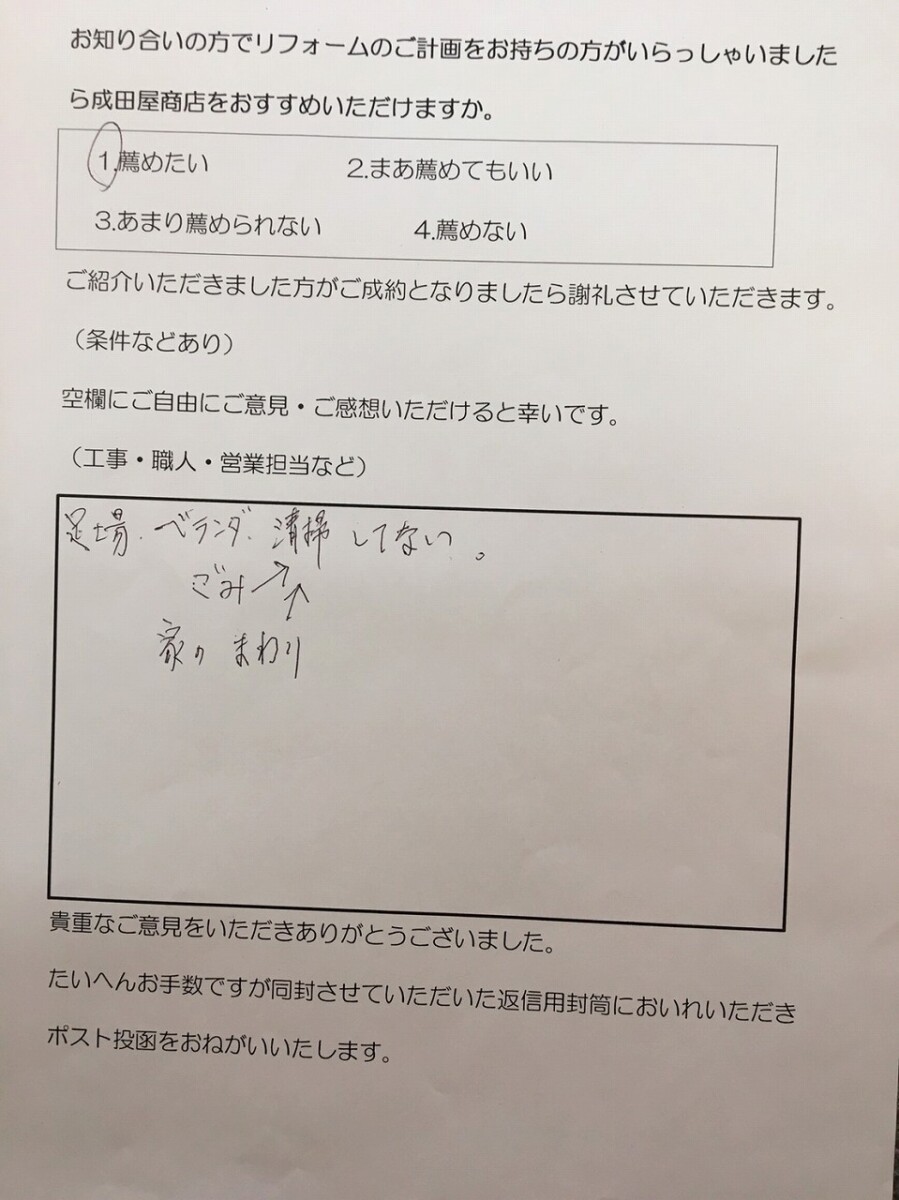 お知り合いの方でリフォームのご計画をお持ちの方がいらっしゃいました
ら成田屋商店をおすすめいただけますか。
1.薦めたい 2.まあ薦めてもいい
3.あまり薦められない 4.薦めない
ご紹介いただきました方がご成約となりましたら謝礼させていただきます。
（条件などあり）
空欄にご自由にご意見・ご感想いただけると幸いです。
（工事・職人・営業担当など）
足場、ベランダ、清掃してない。
ごみ↗↑
家のまわり
貴重なご意見をいただきありがとうございました。
たいへんお手数ですが同封させていただいた返信用封筒においれいただき
ポスト投函をおねがいいたします。